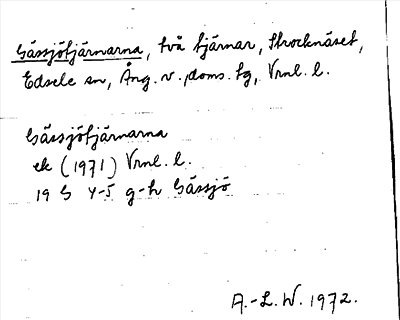 Gåssjötjärnarna, två tjärnar, Strocknäset,
Edsele sn, Ång. v. doms. tg, Vrnl. l.
Gåssjötjärnarna
ek (1971) Vrnl. l.
19 G 4-5 g-h Gåssjö
A.-L. W. 1972.